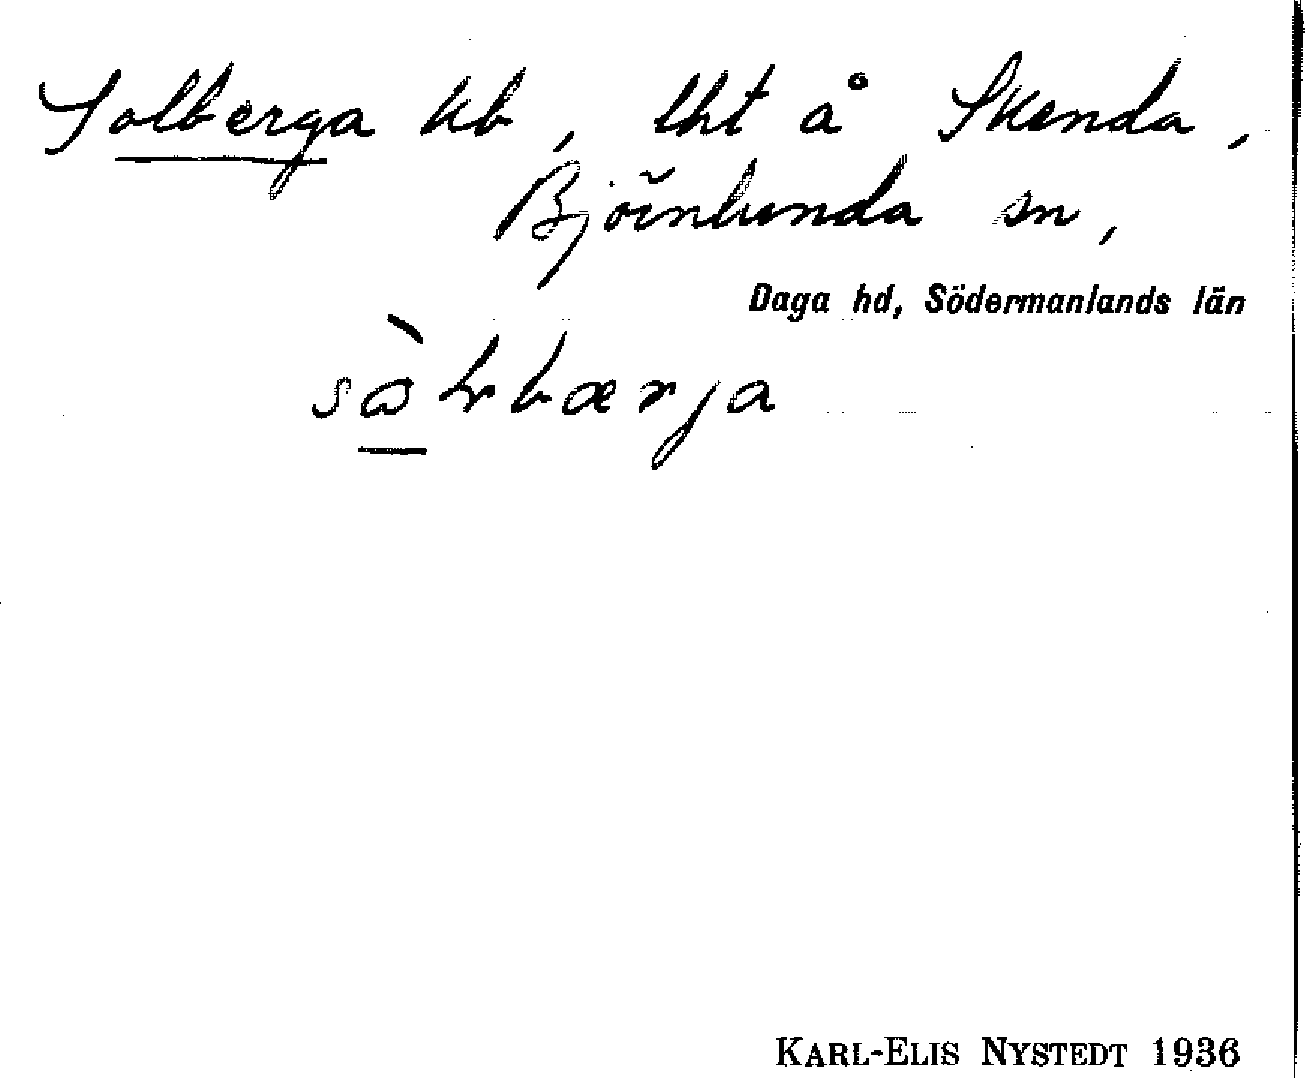 Solberga kb, lht å Skenda,
Björnlunda sn,
Daga hd, Södermanlands län
KARL-ELIS NYSTEDT 1936